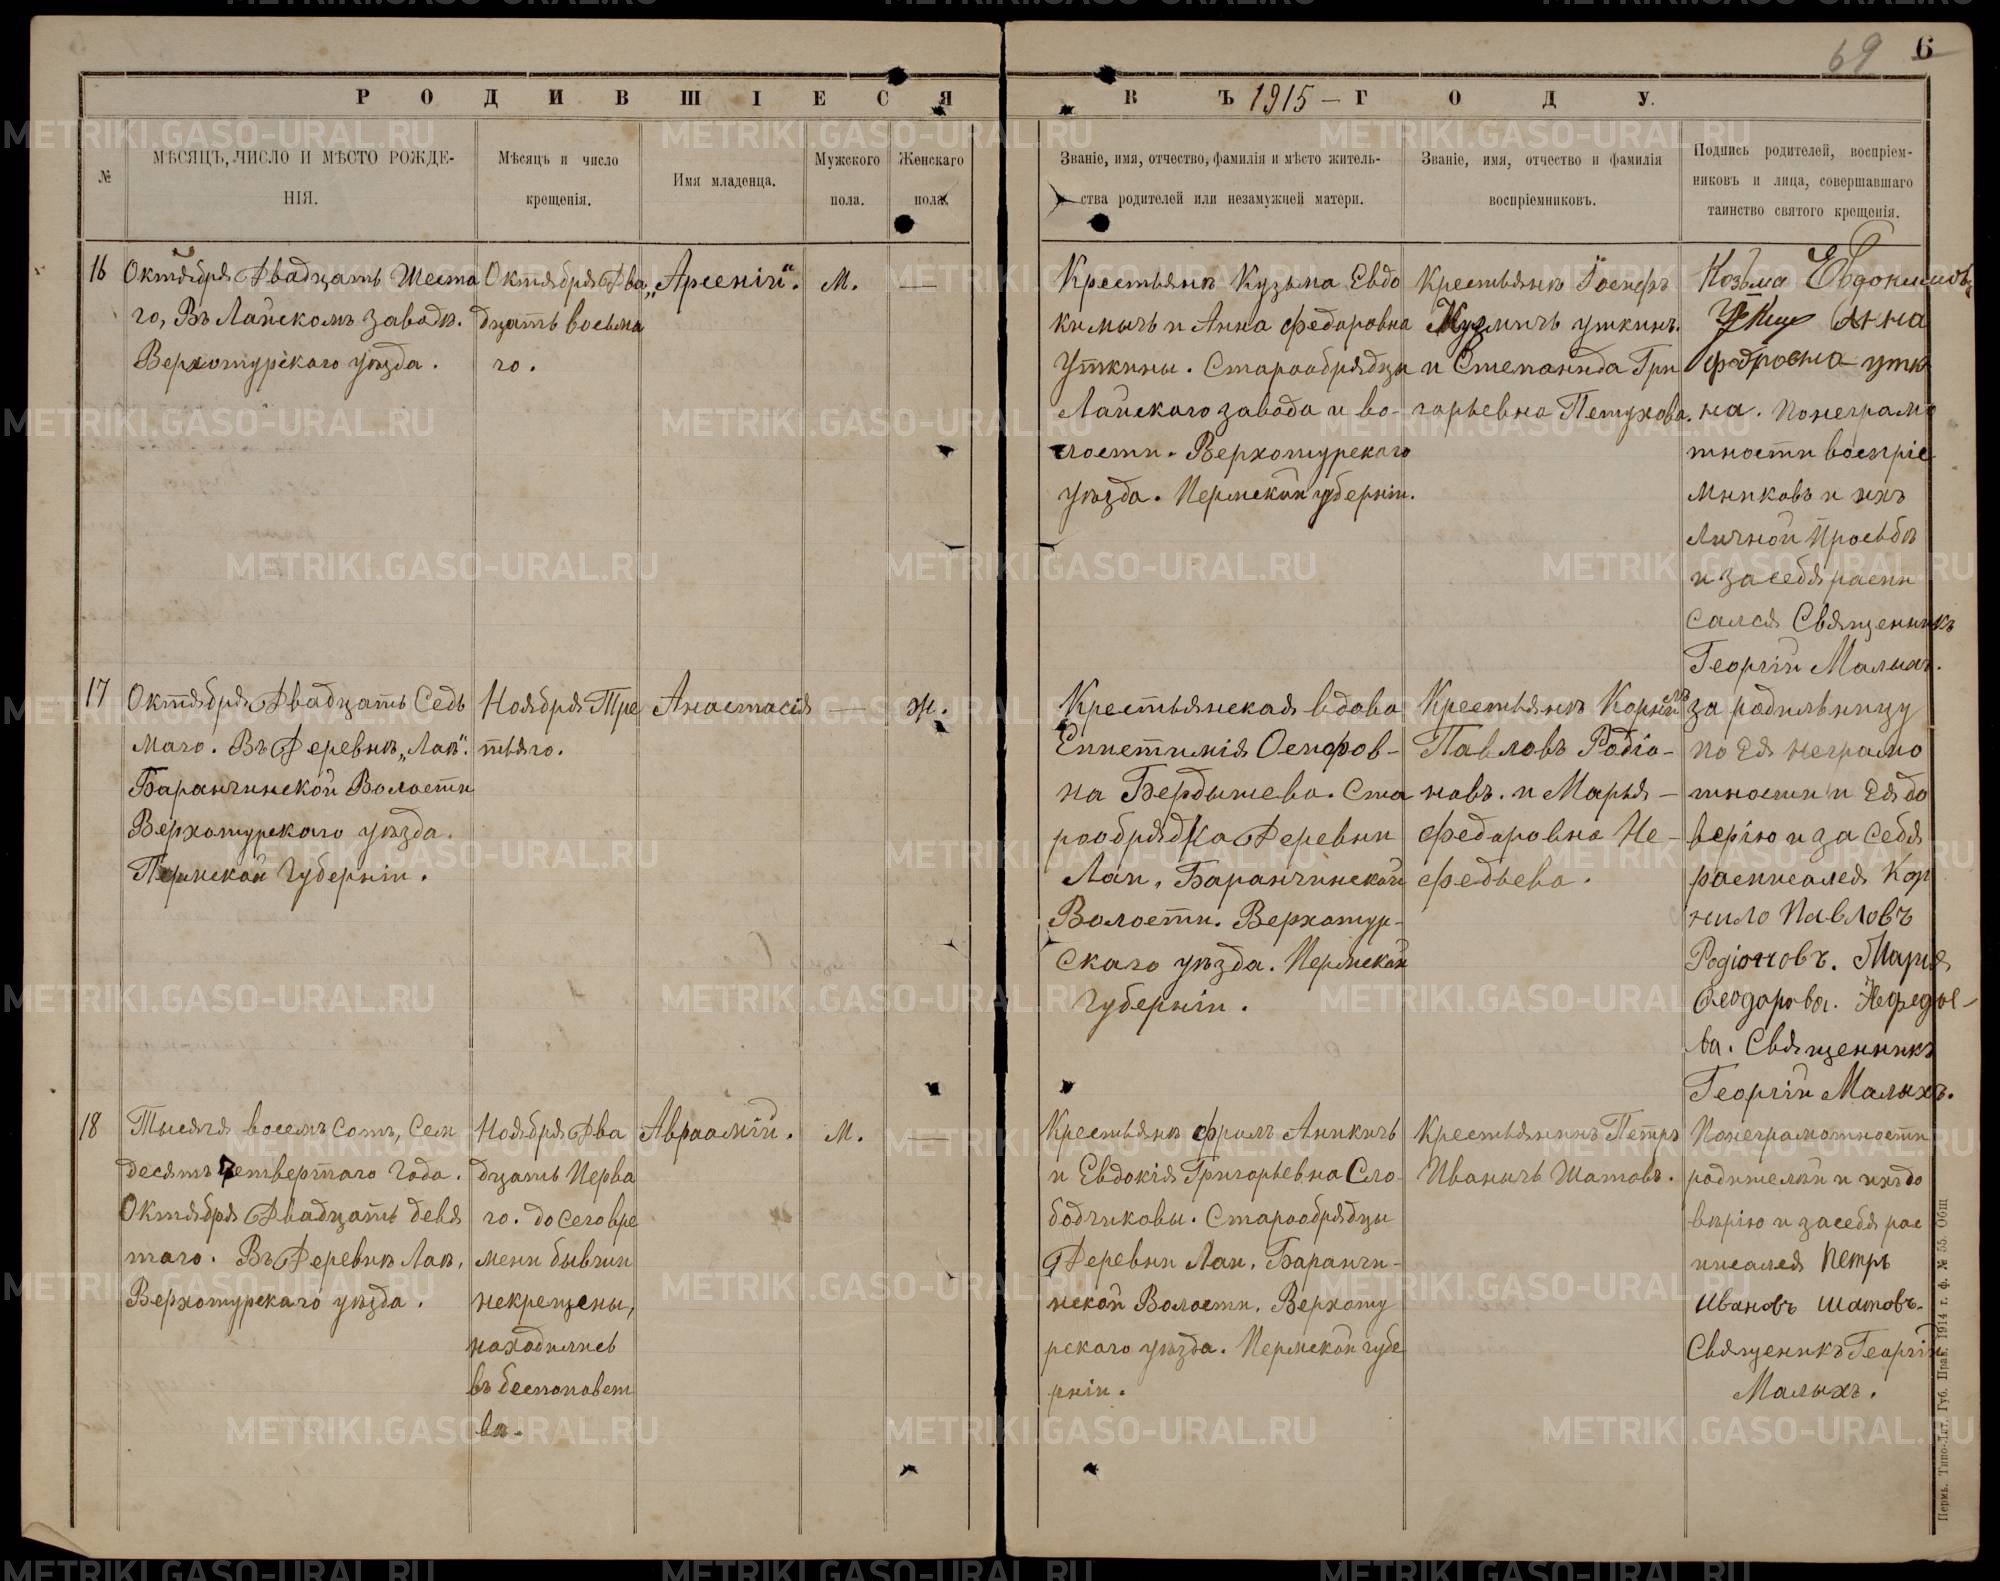 69 6
РОДИВШІЕСЯ
ВЪ 1915 – ГОДУ.
№
МѢСЯЦЪ, ЧИСЛО И МѢСТО РОЖДЕ-
НІЯ.
Мѣсяцъ и число
крещенія.
Имя младенца.
Мужского
пола.
Женскаго
пола.
Званіе, имя, отчество, фамилія и мѣсто житель-
ства родителей или незамужней матери.
Званіе, имя, отчество и фамилія
воспріемниковъ.
Подпись родителей, воспріем-
никовъ и лица, совершавшаго
таинство святого крещенія.
16
Октября Двадцать Шеста
го, Въ Лайскомъ заводѣ.
Верхотурскаго уѣзда.
Октября Два
дцать восьма
го.
„Арсеній".
М.
—
Крестьянъ Кузьма Евдо
кимычъ и Анна Федоровна
Уткины. Старообрядцы
Лайскаго завода и во-
лости. Верхотурскаго
уѣзда. Пермской губерніи.
Крестьянъ Іосифъ
Кузмичъ Уткинъ.
и Степанида Гри
горьевна Петухова.
Козьма Евдокимовъ
Анна
Фодровна утки
на. Понеграмо
тности воспріе
мниковъ и ихъ
Личной Просьбѣ
и за себя распи
сался Священникъ
Георгій Малыхъ.
17
Октября Двадцать Седь
маго. Въ Деревнѣ „Лаѣ".
Баранчинской Волости
Верхотурскаго уѣзда.
Пермской Губерніи.
Ноября Тре
тьяго.
Анастасія
—
ж.
Крестьянская вдова
Епистимія Осифов-
на Бердышева. Ста
рообрядка Деревни
Лаи, Баранчинской
Волости. Верхотур-
скаго уѣзда. Пермской
Губерніи.
Крестьянъ Корнилъ
Павловъ Родіо-
новъ. и Марья –
Федоровна Не-
федьева.
за родильницу
по Ея неграмо
тности и Ея до
верію и за себя
росписался Кор
нило Павловъ
Родіоновъ. Мария
Феодорова. Нефедье-
ва. Священникъ
Георгій Малыхъ.
18
Тысяча восемъ сотъ, Сем
десятъ Четвертаго Года.
Октября Двадцать девя
таго. Въ Деревнѣ Лаѣ,
Верхотурскаго уѣзда.
Ноября Два
дцать Перва
го. до сего вре
мени бывши
некрещены,
находились
въ беспоповст
вѣ.
Авраамій.
М.
—
Крестьянъ Фролъ Аникичъ
и Евдокія Григорьевна Сло
бодчиковы. Старообрядцы
Деревни Лаи, Баранчи-
нской Волости, Верхоту
рскаго уѣзда. Пермской губе
рніи.
Крестьянинъ Петръ
Иванычъ Шатовъ.
Понеграмотности
родителѣй и ихъ до
вѣрію и засебя рос
писался Петръ
Ивановъ Шатовъ.
Священикъ Георгій
Малыхъ.
Пермь. Типо-Лит. Губ. Прав. 1914 г. ф. № 55. Общ
METRIKI.GASO-URAL.RU